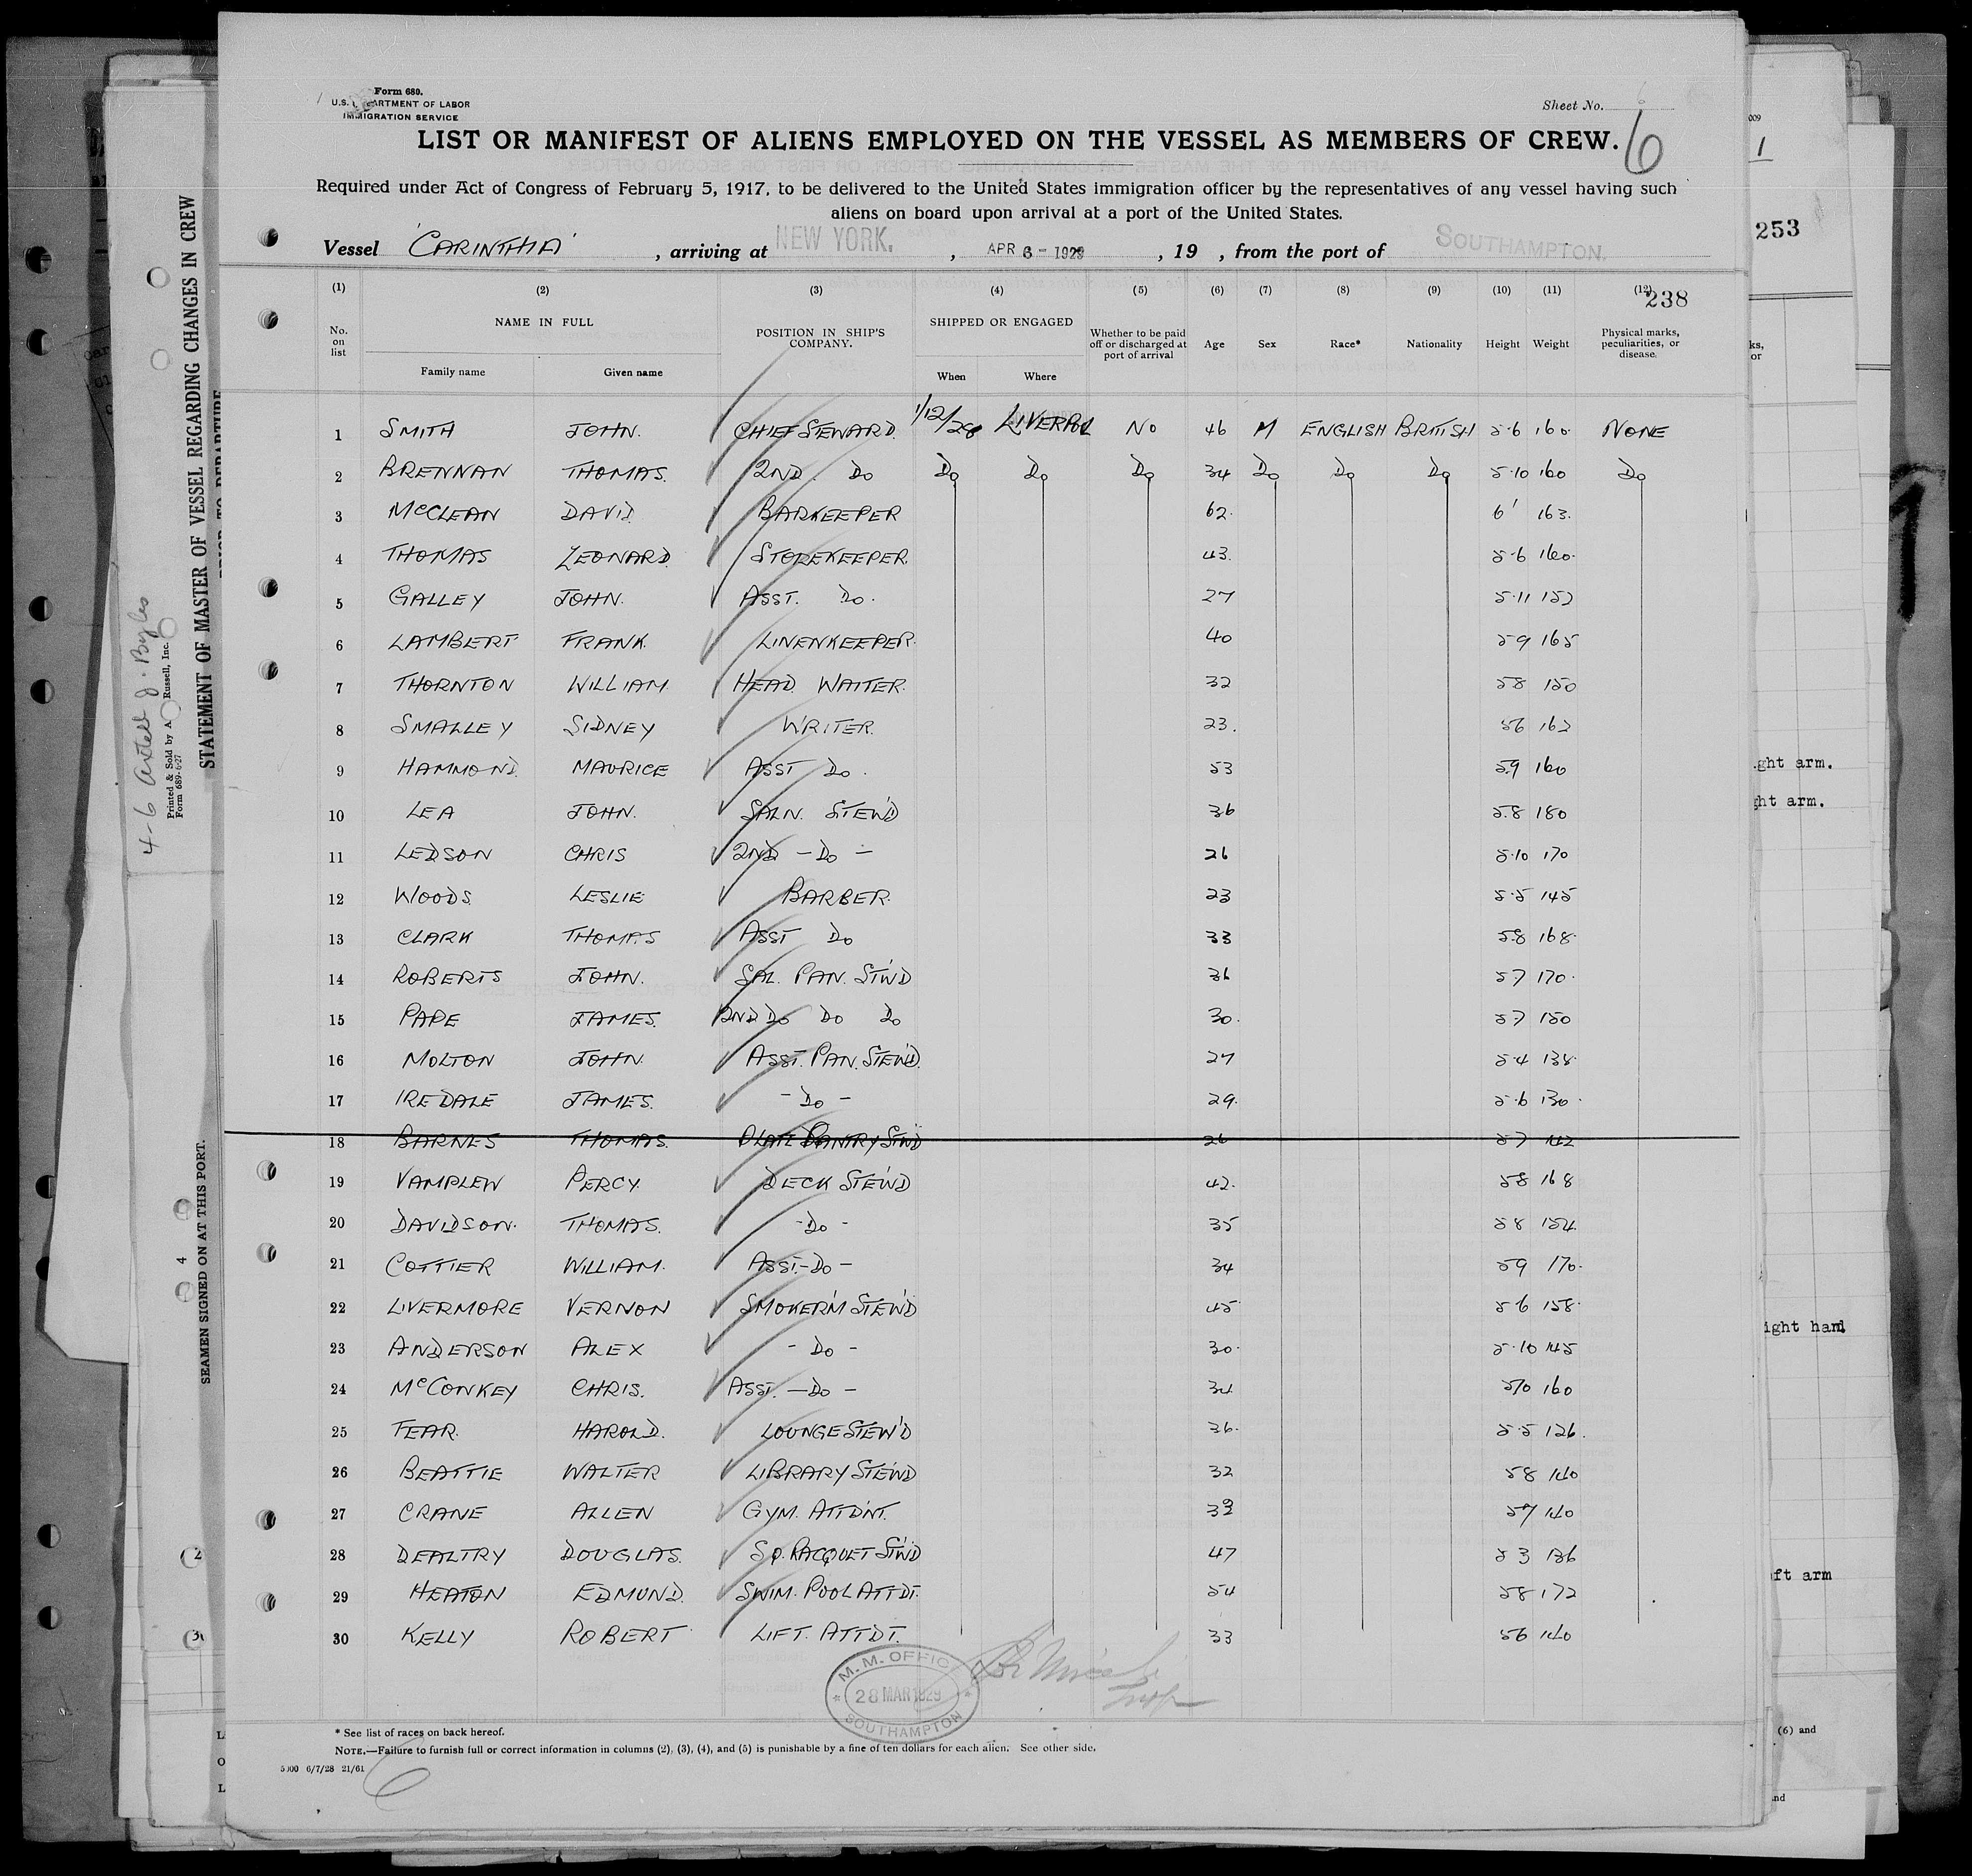 Form 680.
U.S. DEPARTMENT OF LABOR
IMMIGRATION SERVICE
Sheet No. 6
LIST OR MANIFEST OF ALIENS EMPLOYED ON THE VESSEL AS MEMBERS OF CREW.
Required under Act of Congress of February 5, 1917, to be delivered to the United States immigration officer by the representatives of any vessel having such
aliens on board upon arrival at a port of the United States.
Vessel 'CARINTHIA', arriving at NEW YORK., APR 6 - 1929, 19 , from the port of SOUTHAMPTON.
(1) (2) (3) (4) (5) (6) (7) (8) (9) (10) (11) (12) 238
No. on list NAME IN FULL Family name Given name POSITION IN SHIP'S COMPANY. SHIPPED OR ENGAGED When Where Whether to be paid off or discharged at port of arrival Age Sex Race* Nationality Height Weight Physical marks, peculiarities, or disease.
1 SMITH JOHN. CHIEF STEWARD. 1/12/28 LIVERPOL NO 46 M ENGLISH BRITISH 5·6 160 NONE
2 BRENNAN THOMAS. 2ND Do Do Do Do 34 Do Do Do 5·10 160 Do
3 McCLEAN DAVID. BARKEEPER 62. 6' 163.
4 THOMAS LEONARD. STOREKEEPER. 43. 5·6 160.
5 GALLEY JOHN. ASST. Do. 27 5·11 152
6 LAMBERT FRANK. LINENKEEPER. 40 5 9 165
7 THORNTON WILLIAM. HEAD WAITER. 32 5 8 150
8 SMALLEY SIDNEY WRITER. 23. 5 6 162
9 HAMMOND. MAURICE ASST Do. 53 5.9 160
10 LEA JOHN. SALN. STEW'D 36 5.8 180
11 LEDSON CHRIS 2ND - Do - 26 5·10 170
12 WOODS. LESLIE BARBER. 23 5·5 145
13 CLARK THOMAS ASST Do 33 5.8 168.
14 ROBERTS JOHN. SAL. PAN. ST'W'D 36 5 7 170.
15 PAPE JAMES. 2ND Do Do Do 30. 5·7 150
16 MOLTON JOHN. ASST. PAN. STEW'D. 27 5·4 138.
17 IREDALE JAMES. - Do - 29. 5·6 130.
18 BARNES THOMAS. PLATE PANTRY ST'W'D 26 5 7 142
19 VAMPLEW PERCY. DECK STEW'D 42. 5 8 168
20 DAVIDSON. THOMAS. - Do - 35 5 8 154
21 COTTIER WILLIAM. ASST. - Do - 34 5 9 170.
22 LIVERMORE VERNON SMOKER'M STEW'D 45 5 6 158.
23 ANDERSON ALEX - Do - 30. 5·10 145
24 McCONKEY CHRIS. ASST. - Do - 34 5/10 160
25 FEAR. HAROLD. LOUNGE STEW'D 36. 5·5 126.
26 BEATTIE WALTER LIBRARY STEW'D 32 5 8 140
27 CRANE ALLEN GYM. ATTD'NT. 5 7 140
28 DEALTRY DOUGLAS. SQ. RACQUET ST'W'D 47 5 3 136
29 HEATON EDMUND. SWIM. POOL ATTDT. 54 5 8 172
30 KELLY ROBERT LIFT. ATTDT. 33 5 6 140
M. M. OFFIC
28 MAR 1929
SOUTHAMPTON
* See list of races on back hereof.
NOTE.—Failure to furnish full or correct information in columns (2), (3), (4), and (5) is punishable by a fine of ten dollars for each alien. See other side.
5000 6/7/28 21/61
6
STATEMENT OF MASTER OF VESSEL REGARDING CHANGES IN CREW
PRIOR TO DEPARTURE
Printed & Sold by A Russell, Inc.
Form 689-6-27
SEAMEN SIGNED ON AT THIS PORT.
4
1
253
ks,
or
ght arm.
ght arm.
ight hand
ft arm
(6) and
nd